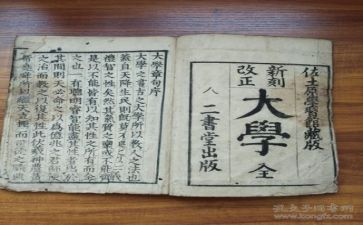 佐土原學習館藏版
新刻
改正
大學
全
二書堂出版
大學章句序
大學之書古之大學所以教人之法也
蓋自天降生民則既莫不與之以仁義
禮智之性矣然其氣質之稟或不能齊
是以不能皆有以知其性之所有而全
之也一有聰明睿智能盡其性者出於
其間則天必命之以為億兆之君師使
之治而教之以復其性此伏羲神農黃
帝堯舜所以繼天立極而司徒